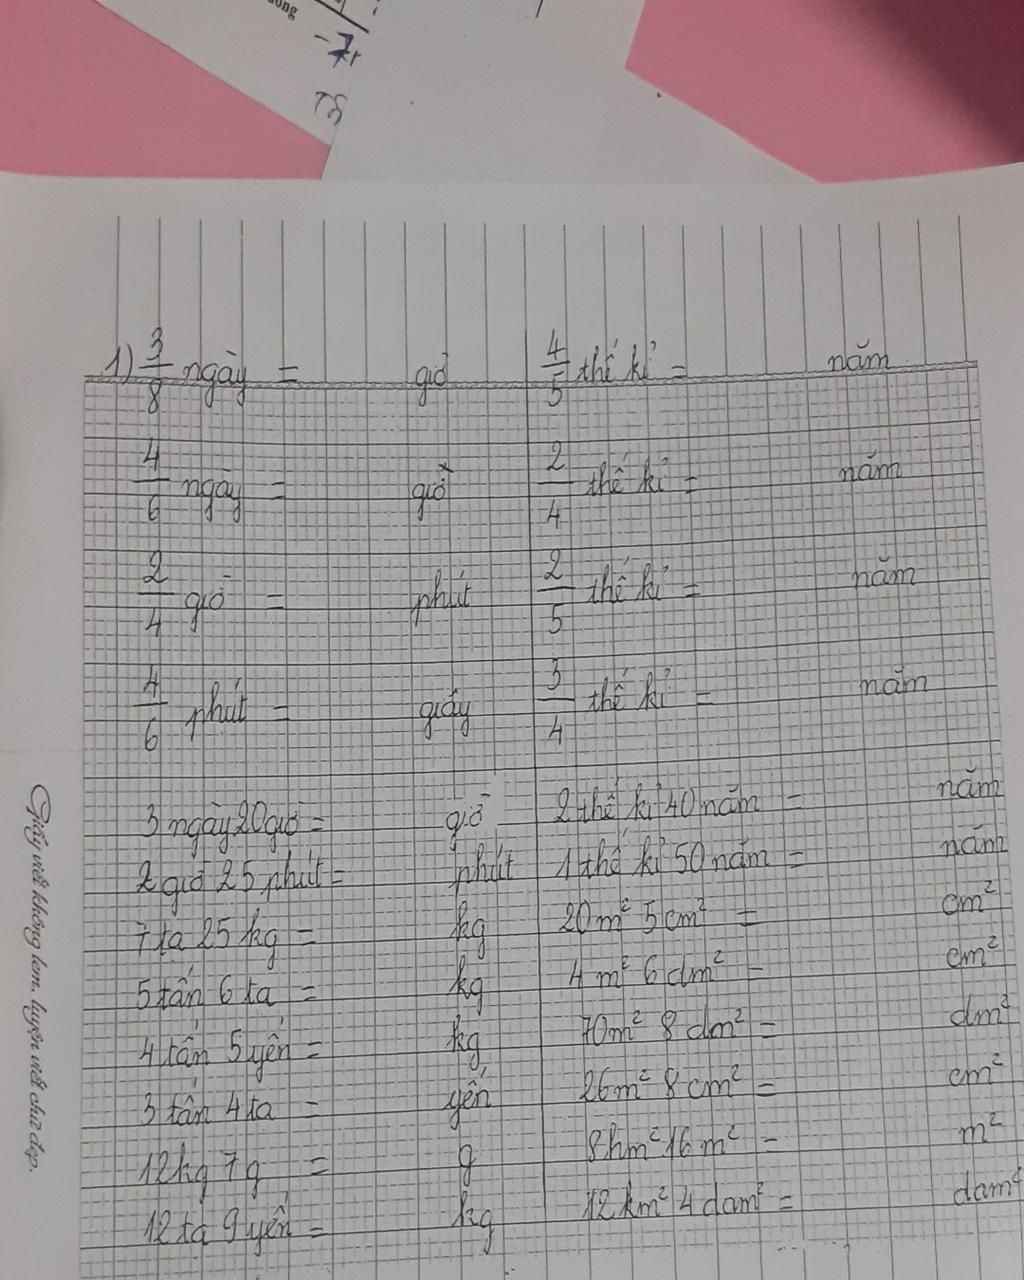 ong
-7r
1) 3/8 ngày = giờ 4/5 thế kỉ = năm
4/6 ngày = giờ 2/4 thế kỉ = năm
2/4 giờ = phút 2/5 thế kỉ = năm
4/6 phút = giấy 3/4 thế kỉ = năm
3 ngày 20 giờ = giờ 2 thế kỉ 40 năm = năm
2 giờ 25 phút = phút 1 thế kỉ 50 năm = năm
7 tạ 25 kg = kg 20m² 5cm² = cm²
5 tấn 6 tạ = kg 4 m² 6 dm² = cm²
4 tấn 5 yến = kg 70m² 8 dm² = dm²
3 tấn 4 tạ = yến 26m² 8 cm² = cm²
12kg 7g = g 8hm² 16 m² = m²
12 tạ 9 yến = kg 12 km² 4 dam² = dam²
Giấy viết không lem, luyện viết chữ đẹp.